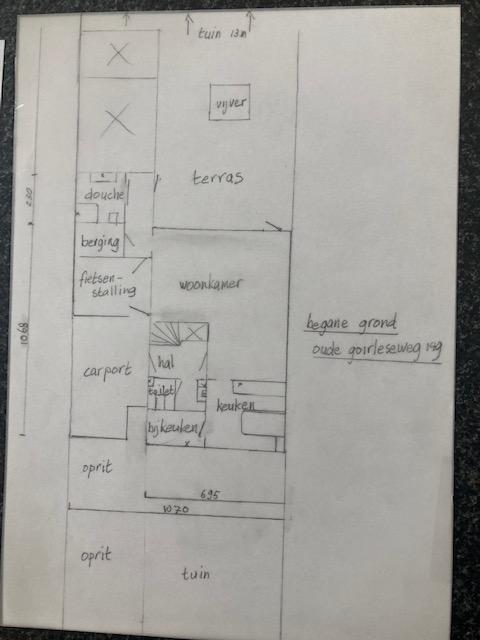 tuin 13m
vijver
terras
douche
berging
fietsen-
stalling
woonkamer
begane grond
oude goirleseweg 149
hal
carport
toilet
keuken
bijkeuken
oprit
695
1070
oprit
tuin
1068